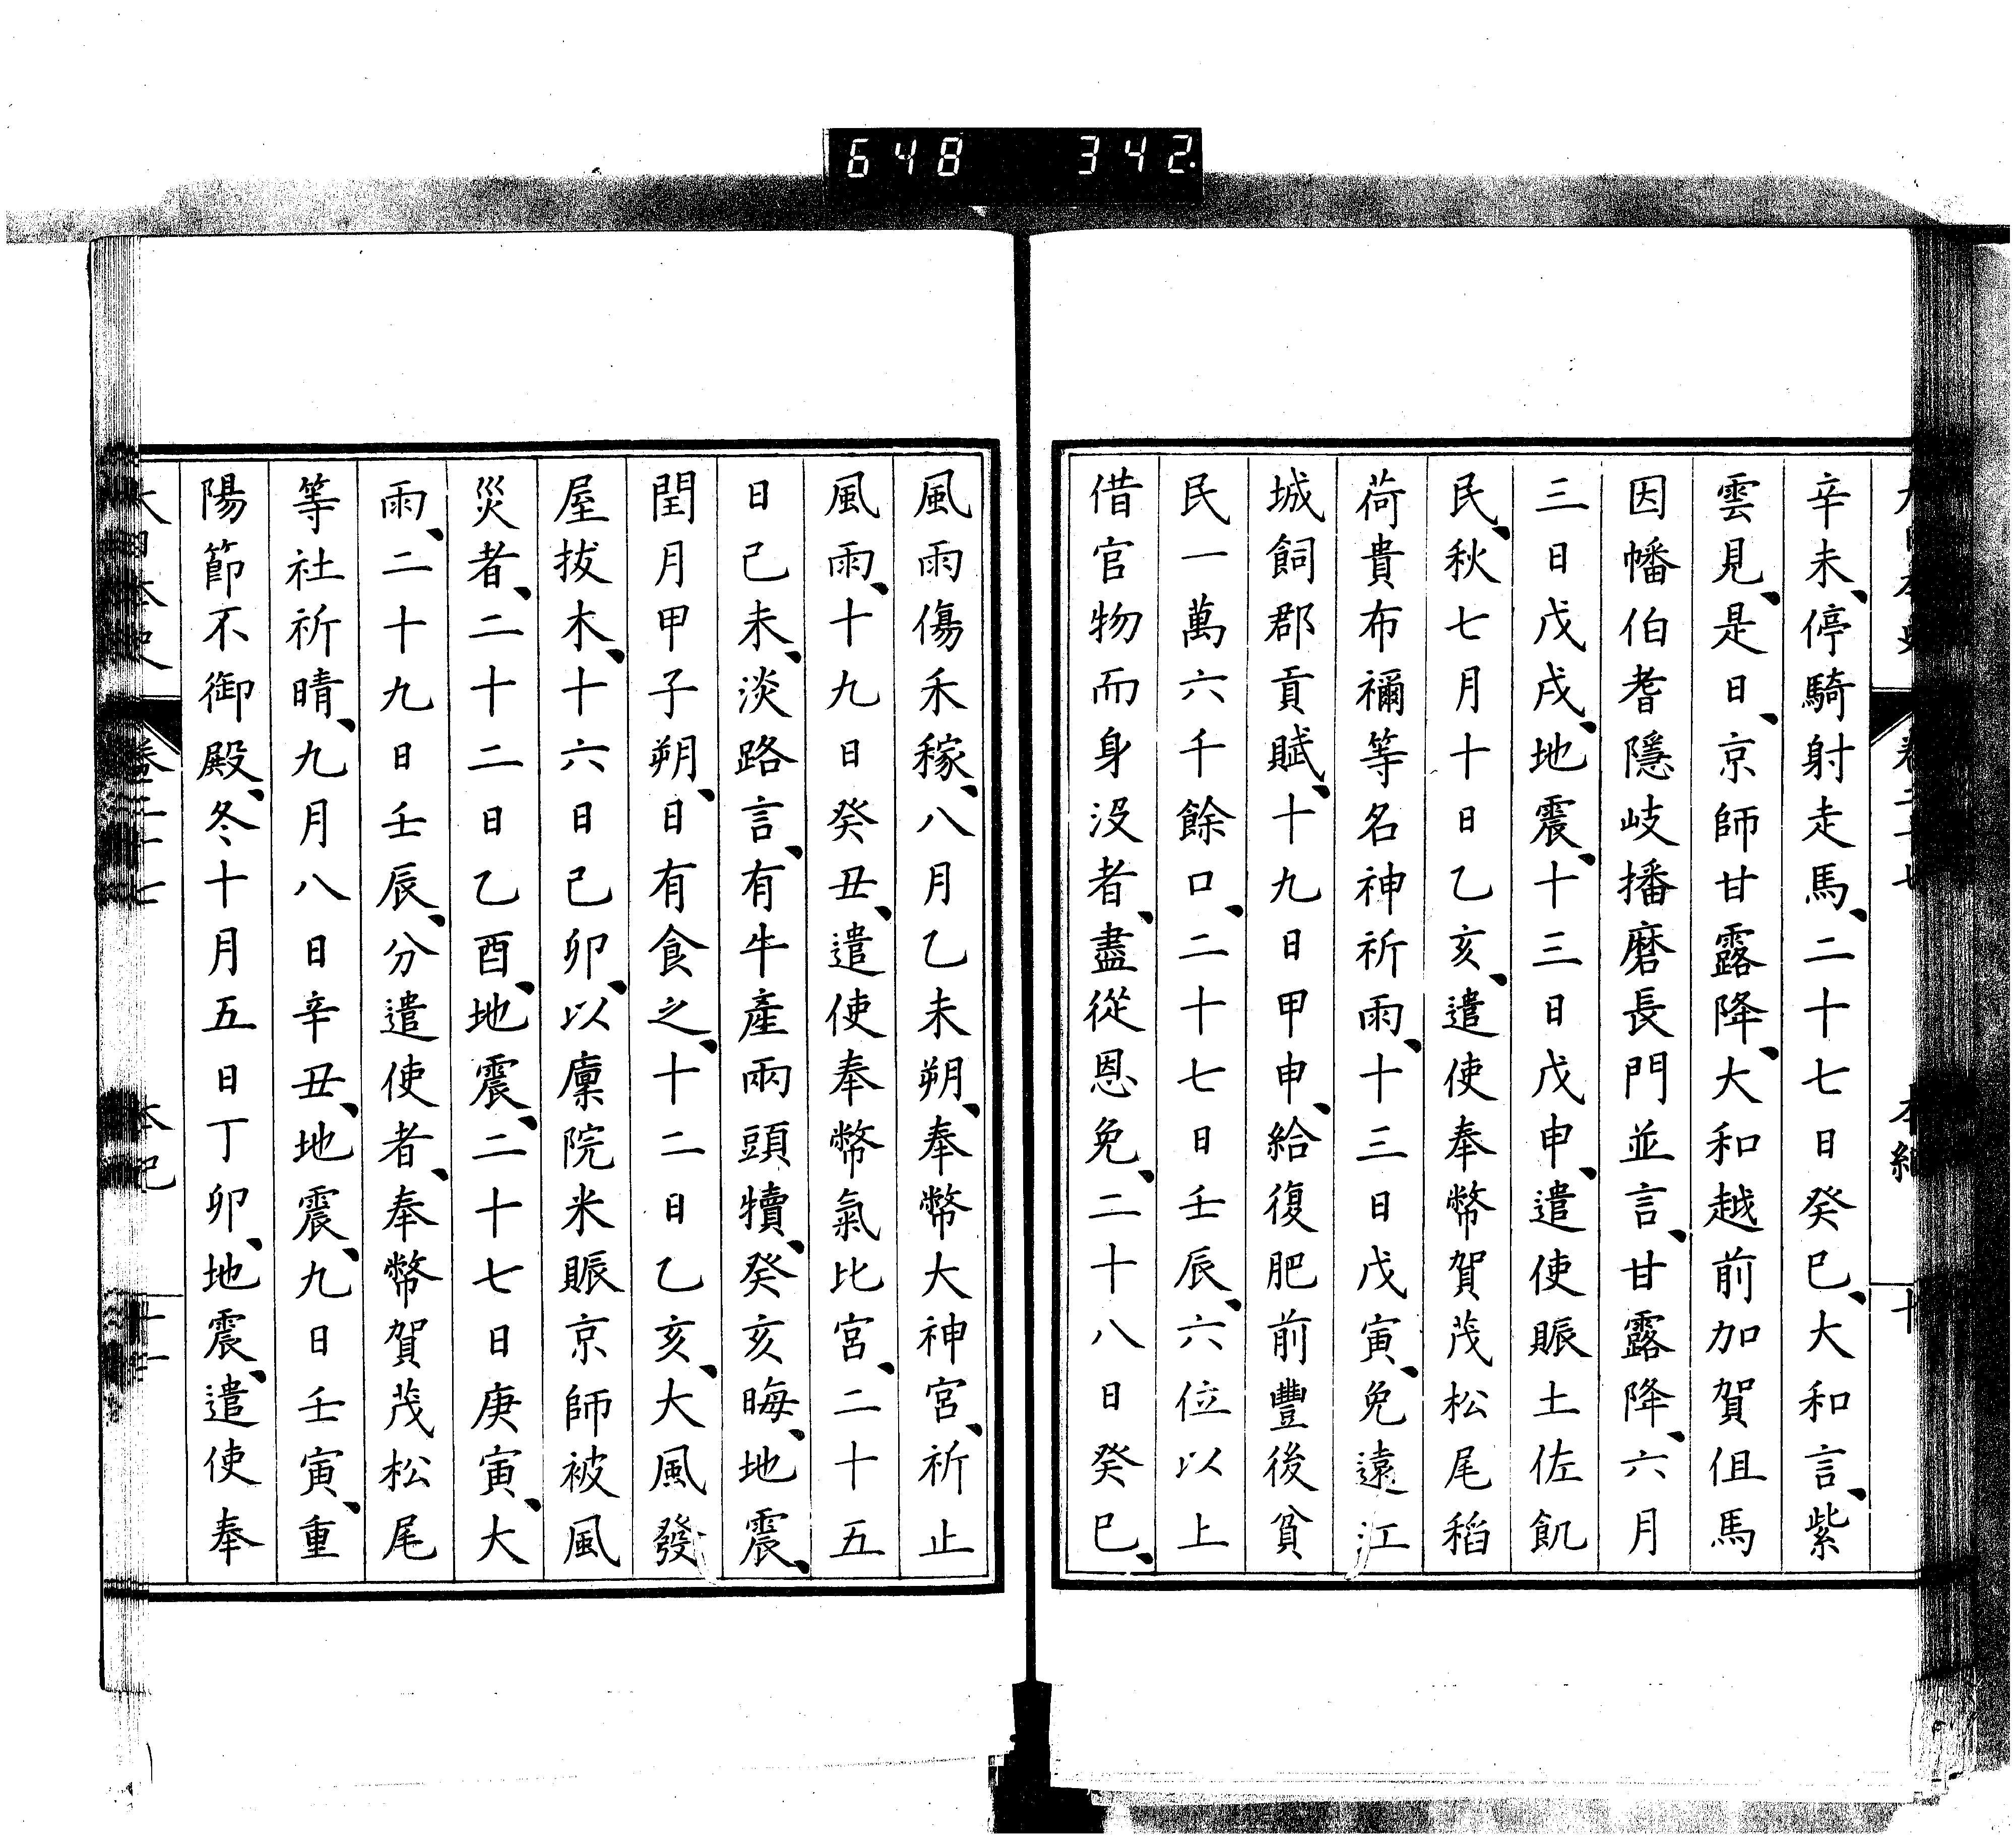 648 342
辛未、停騎射走馬、二十七日癸巳、大和言、紫
雲見、是日、京師甘露降、大和越前加賀但馬
因幡伯耆隱岐播磨長門並言、甘露降、六月
三日戊戌、地震、十三日戊申、遣使賑土佐飢
民、秋七月十日乙亥、遣使奉幣賀茂松尾稻
荷貴布禰等名神祈雨、十三日戊寅、免遠江
城飼郡貢賦、十九日甲申、給復肥前豐後貧
民一萬六千餘口、二十七日壬辰、六位以上
借官物而身沒者、盡從恩免、二十八日癸巳、
風雨傷禾稼、八月乙未朔、奉幣大神宮、祈止
風雨、十九日癸丑、遣使奉幣氣比宮、二十五
日己未、淡路言、有牛產兩頭犢、癸亥晦、地震、
閏月甲子朔、日有食之、十二日乙亥、大風發
屋拔木、十六日己卯、以廩院米賑京師被風
災者、二十二日乙酉、地震、二十七日庚寅、大
雨、二十九日壬辰、分遣使者、奉幣賀茂松尾
等社祈晴、九月八日辛丑、地震、九日壬寅、重
陽節不御殿、冬十月五日丁卯、地震、遣使奉